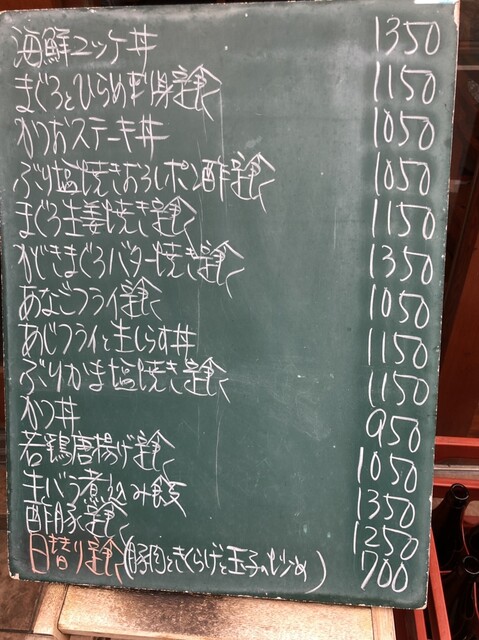 海鮮ユッケ丼 1350
まぐろとひらめ刺身定食 1150
かつおステーキ丼 1050
ぶり塩焼きおろしポン酢定食 1050
まぐろ生姜焼き定食 1150
かじきまぐろバター焼き定食 1350
あなごフライ定食 1050
あじフライと生しらす丼 1150
ぶりかま塩焼き定食 1150
かつ丼 950
若鶏唐揚げ定食 1050
牛バラ煮込み飯 1350
酢豚定食 1250
日替り定食(豚肉ときくらげと玉子のいため) 700